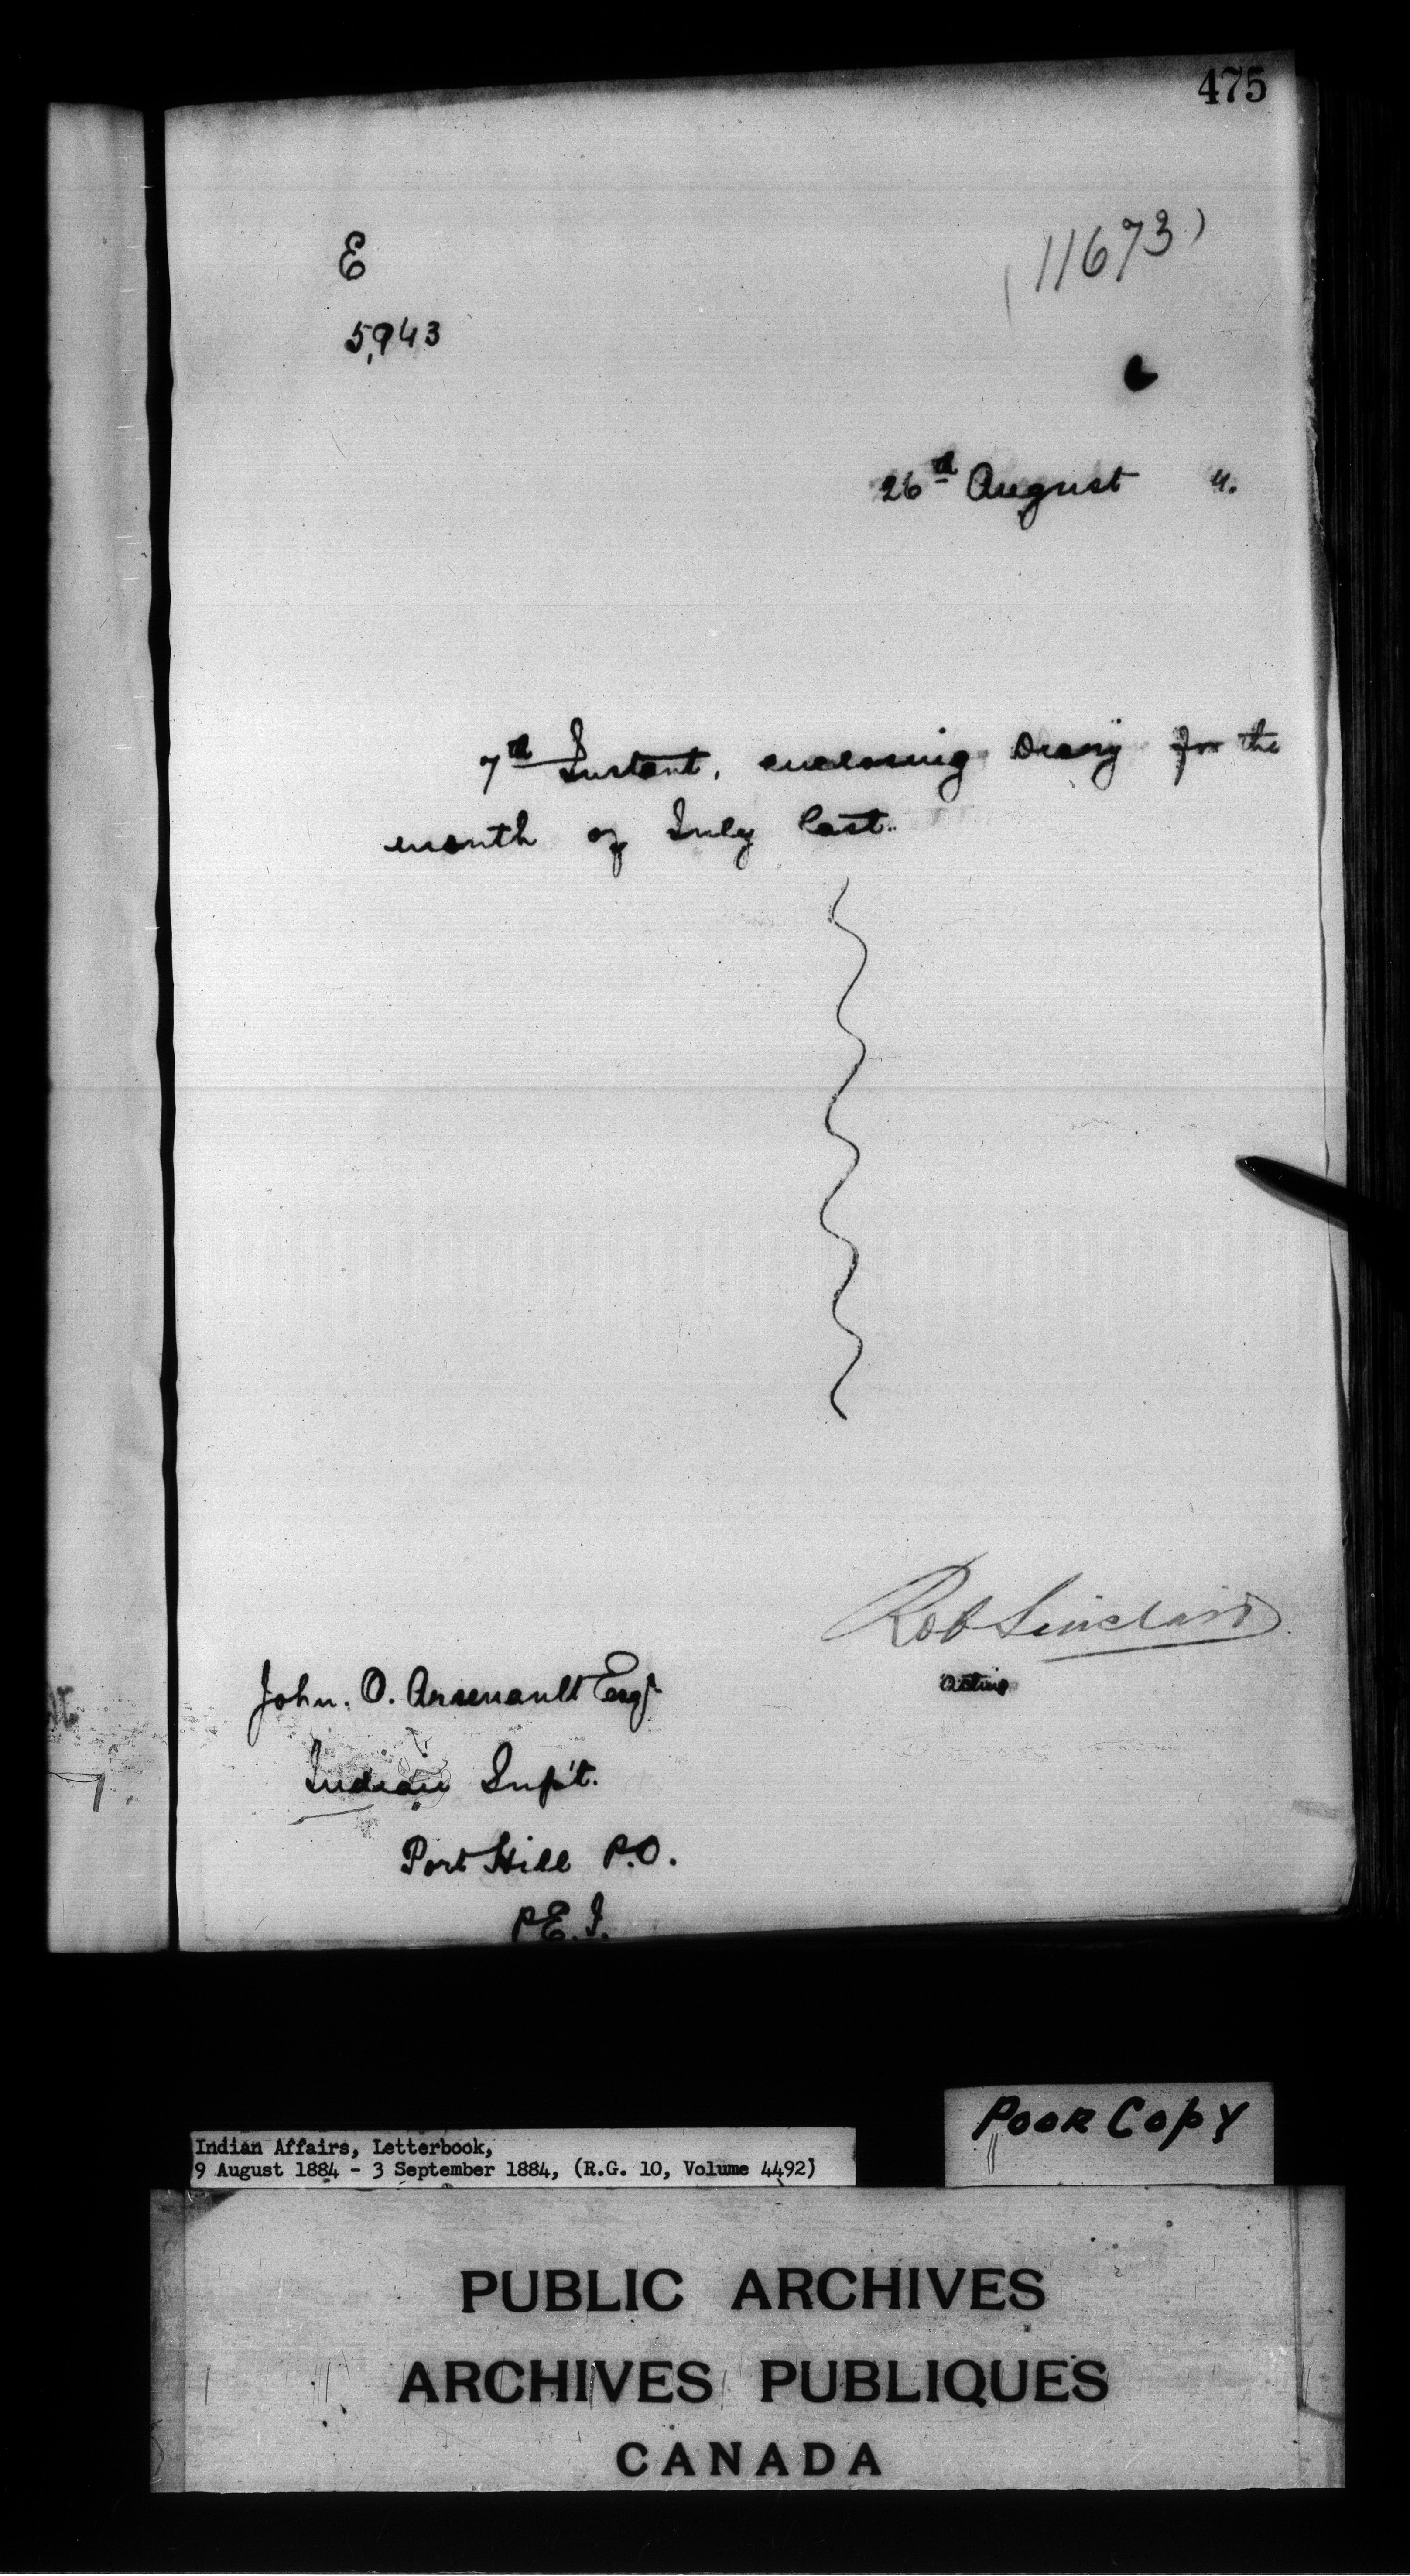 475
E
(11673)
5,943
26th August 4.
7th Instant, enclosing Diary for the
month of July last.
Rob Sinclair
Acting
John. O. Arsenault Esqr
Indian Supt.
Port Hill P.O.
P.E.I.
Poor Copy
Indian Affairs, Letterbook,
9 August 1884 - 3 September 1884, (R.G. 10, Volume 4492)
PUBLIC ARCHIVES
ARCHIVES PUBLIQUES
CANADA